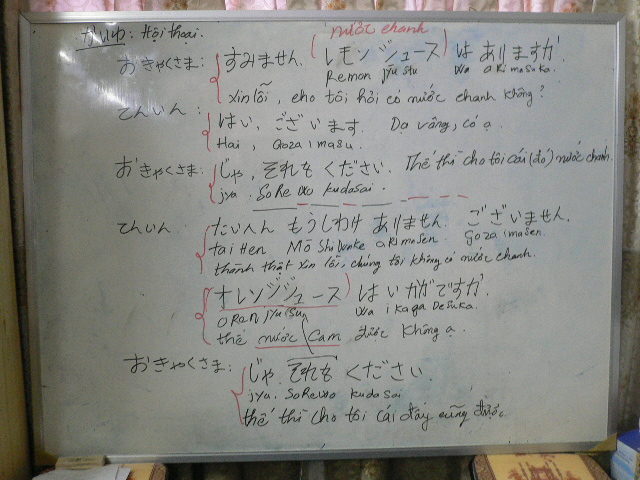 かいわ : Hội thoại.
nước chanh
おきゃくさま : すみません. (レモンジュース) は ありますか.
Remon jyusu wa aRimasuka.
xin lỗi, cho tôi hỏi có nước chanh không?
てんいん : はい, ございます. Dạ vâng, có ạ.
Hai, Gozaimasu.
おきゃくさま : じゃ, それを ください. Thế thì cho tôi cái (đó) nước chanh.
jya, SoRe wo kudasai.
てんいん たいへん もうしわけ ありません. ございません.
tai Hen Mō Shiwake aRimasen. Gozaimasen.
thành thật xin lỗi, chúng tôi không có nước chanh.
オレンジジュース) は いかがですか.
ORenjyusu wa ikaga Desuka.
thế nước cam được không ạ.
おきゃくさま : じゃ, それを ください.
jya. SoRe wo kudasai
thế thì cho tôi cái đấy cũng được.